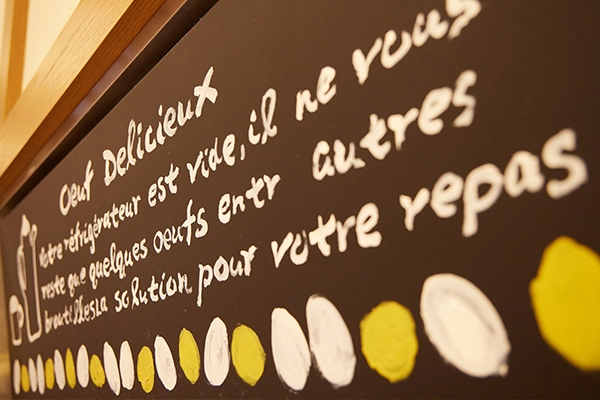 Oeuf Delicieux
Votre réfrigérateur est vide, il ne vous
reste que quelques oeufs entr autres
brouillesla solution pour votre repas